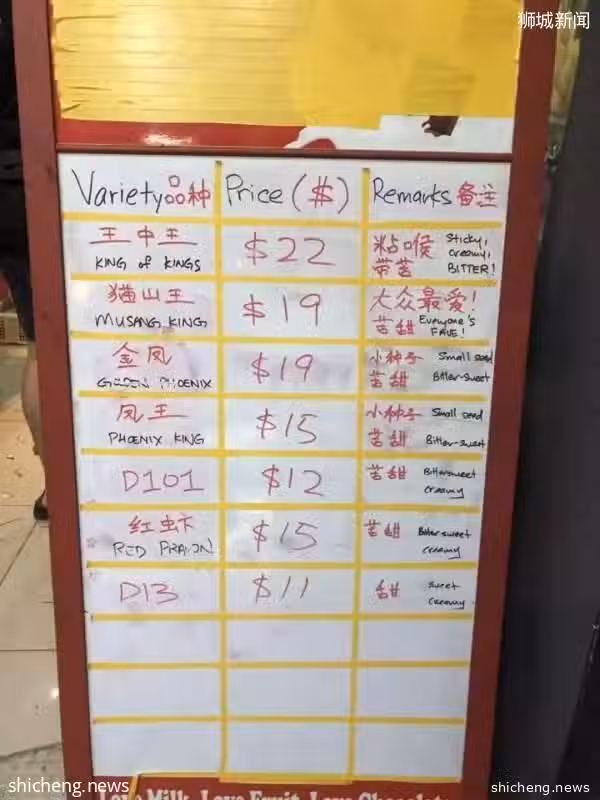 狮城新闻
Variety品种 Price ($) Remarks 备注
王中王 $22 粘喉 Sticky,
KING of KINGS 带苦 creamy,
BITTER!
猫山王 $19 大众最爱!
MUSANG KING 苦甜 Everyone's
FAVE!
金凤 $19 小种子 Small seed
GOLDEN PHOENIX 苦甜 Bitter-sweet
凤王 $15 小种子 Small seed
PHOENIX KING 苦甜 Bitter-sweet
D101 $12 苦甜 Bittersweet
creamy
红虾 $15 苦甜 Bitter sweet
RED PRAWN creamy
D13 $11 甜 sweet
creamy
Love Milk, Love Fruit, Love Chocolate
shicheng.news
shicheng.news